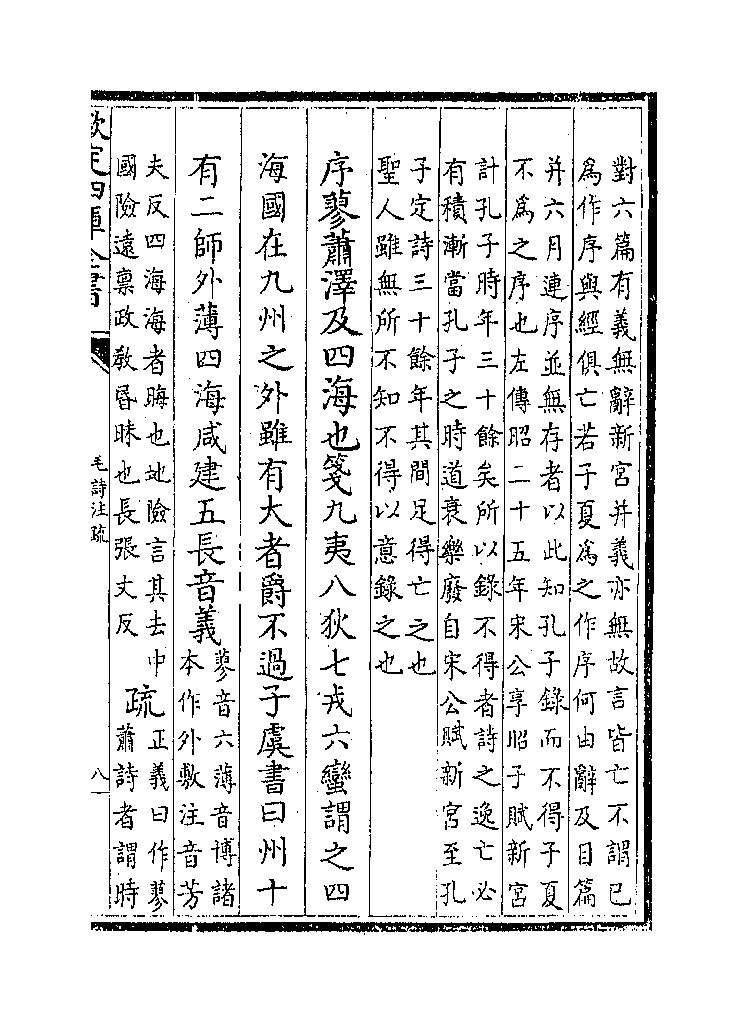 對六篇有義無辭新宮并義亦無故言皆亡不謂已
爲作序與經俱亡若子夏爲之作序何由辭及目篇
并六月連序並無存者以此知孔子錄而不得子夏
不爲之序也左傳昭二十五年宋公享昭子賦新宮
計孔子時年三十餘矣所以錄不得者詩之逸亡必
有積漸當孔子之時道衰樂廢自宋公賦新宮至孔
子定詩三十餘年其間足得亡之也
聖人雖無所不知不得以意錄之也
序蓼蕭澤及四海也箋九夷八狄七戎六蠻謂之四
海國在九州之外雖有大者爵不過子虞書曰州十
有二師外薄四海咸建五長音義
蓼音六薄音博諸
本作外敷注音芳
夫反四海海者晦也地險言其去中
國險遠稟政敎昬昧也長張丈反
疏
正義曰作蓼
蕭詩者謂時
欽定四庫全書
毛詩注疏
八